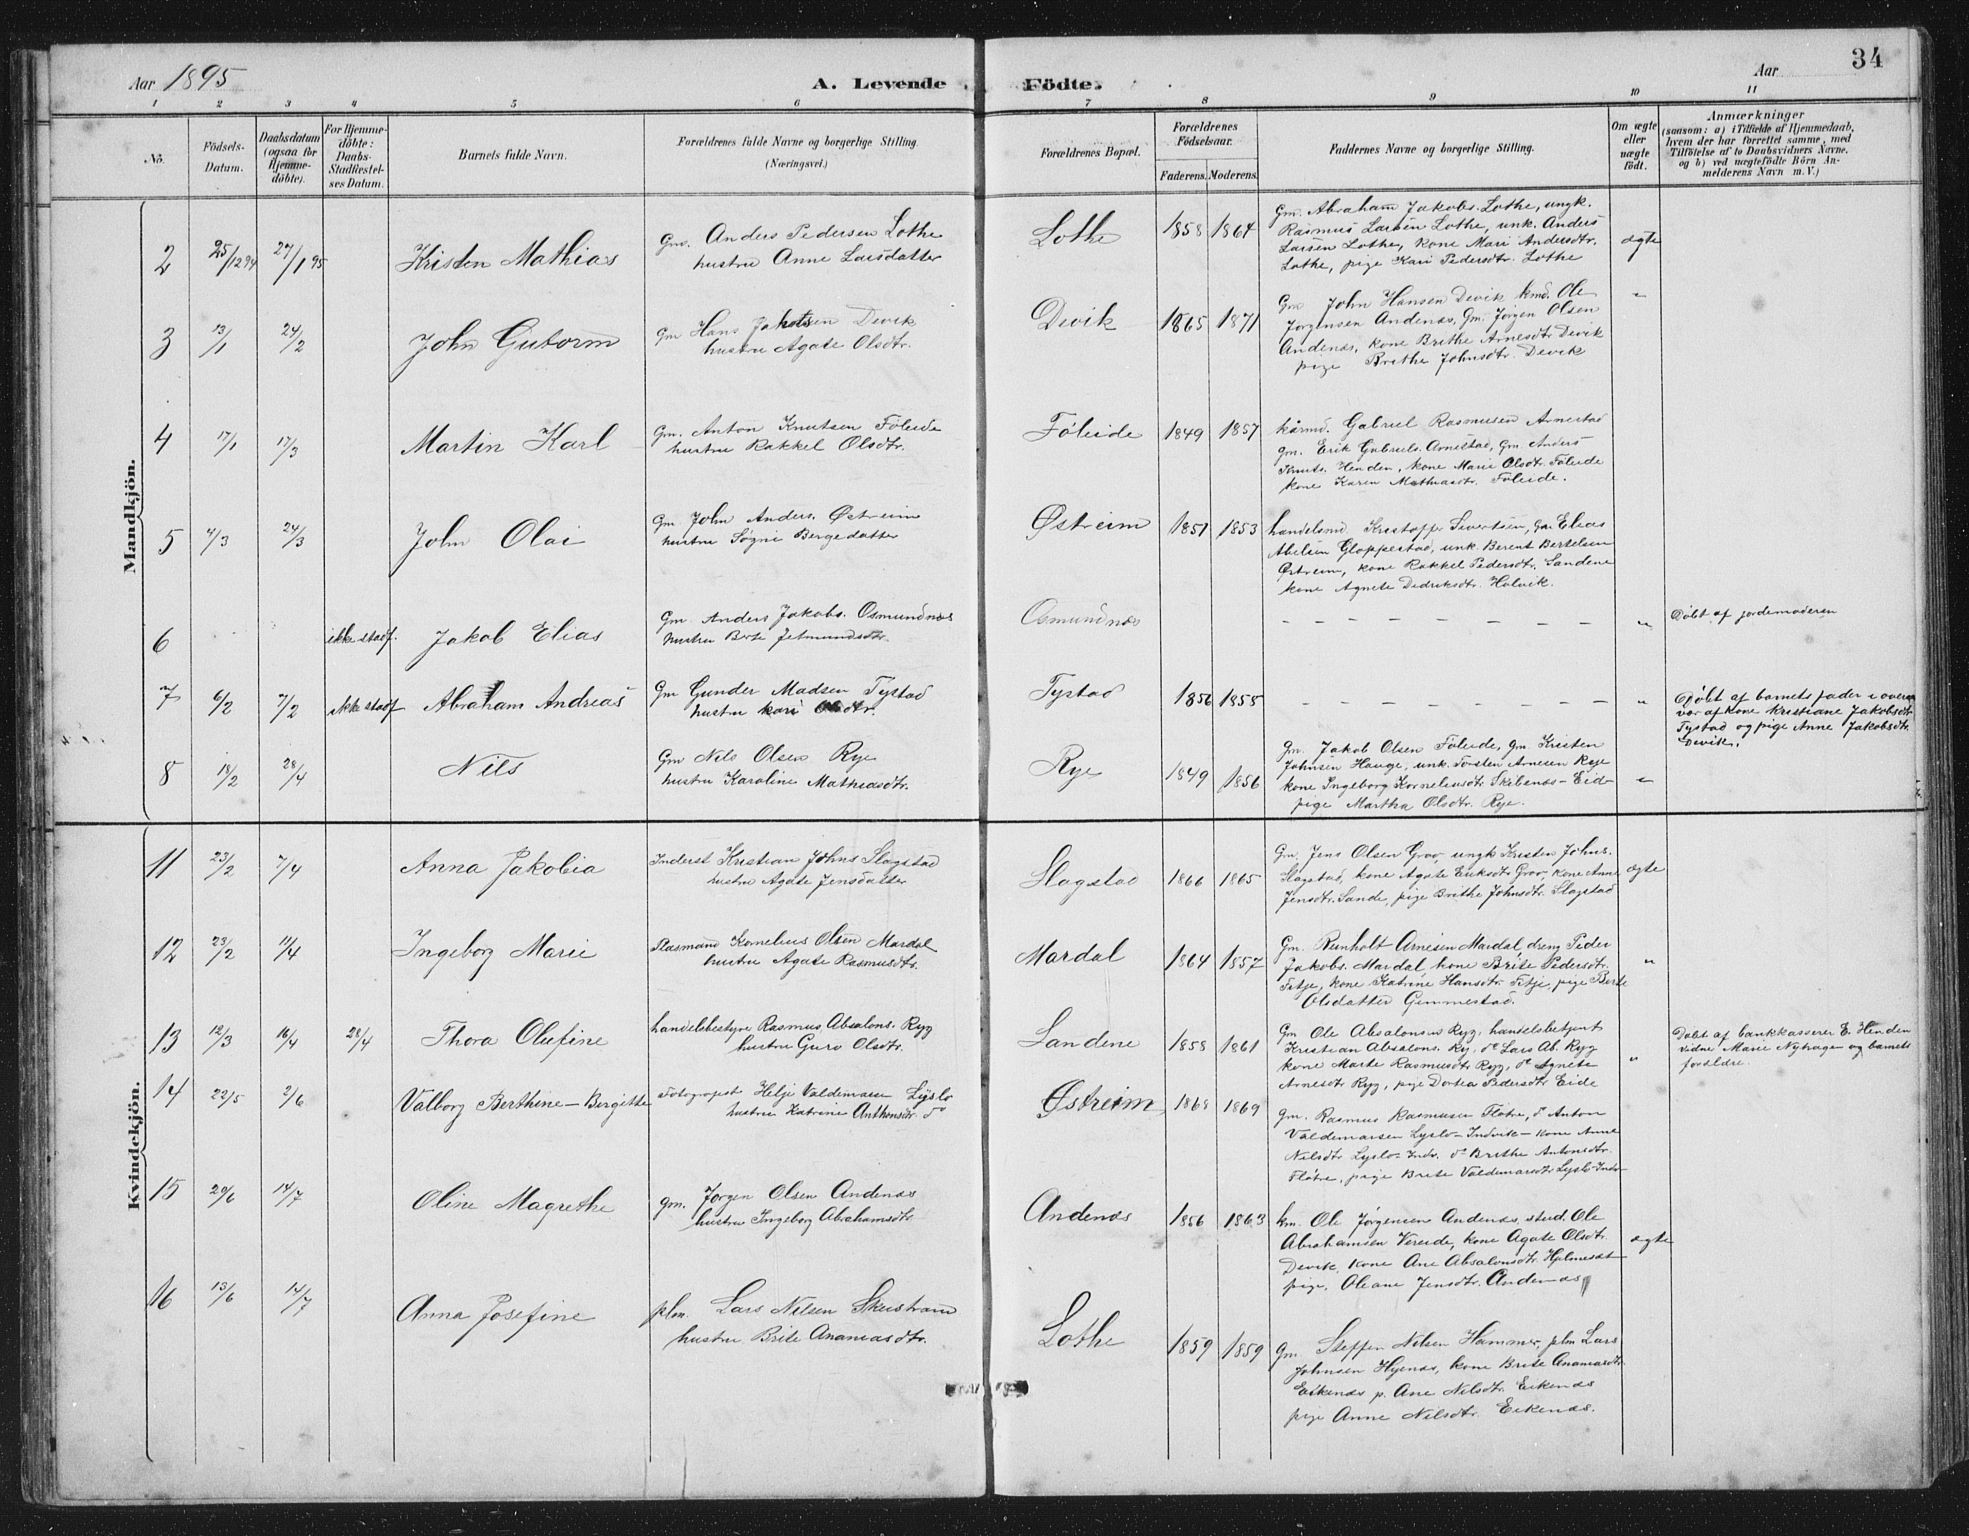 Aar 1895
A. Levende Födte.
Aar
34
1 2 3 4 5 6 7 8 9 10 11
No.
Födsels-Datum.
Daabsdatum (ogsaa for hjemme-döbte).
For Hjemme-döbte: Daabs-Stadfæstel-ses Datum.
Barnets fulde Navn.
Forældrenes fulde Navne og borgerlige Stilling (Næringsvei.)
Forældrenes Bopæl.
Forældrenes Födselsaar.
Faderens. Moderens.
Faddernes Navne og borgerlige Stilling.
Om ægte eller uægte födt.
Anmærkninger
(saasom: a) i Tilfælde af Hjemmedaab,
hvem der har forrettet samme, med
Tilföielse af to Daabsvidners Navne.
og b) ved uægtefödte Börn An-
melderens Navn m. V.)
Mandkjön.
2 25/12 94 27/1 95 Kristen Mathias
Gm. Anders Pedersen Lothe
hustru Anne Larsdatter
Lothe 1858 1864
Gm. Abraham Jakobs. Lothe, ungk.
Rasmus Larsen Lothe, unk. Anders
Larsen Lothe, kone Mari Andersdtr.
Lothe, pige Kari Pedersdtr. Lothe
ægte
3 13/1 24/2 John Guttorm
Gm Hans Jakobsen Devik
hustru Agate Olsdtr.
Devik 1865 1871
Gm John Hansen Devik kmd. Ole
Jørgensen Andenæs, Gm. Jørgen Olsen
Andenæs, kone Brithe Arnesdtr Devik
pige Brithe Johnsdtr. Devik
"
4 17/1 17/3 Martin Karl
Gm. Anton Knutsen Føleide
hustru Rakkel Olsdtr.
Føleide 1849 1857
kårmd. Gabriel Rasmusen Arnestad
gm. Erik Gabriels. Arnestad, Gm. Anders
Knuts. Henden, kone Marie Olsdtr. Føleide
kone Karen Mathiasdtr. Føleide.
5 4/3 24/3 John Olai
Gm John Anders. Østreim
hustru Søgni Bergedatter
Østreim 1851 1853
handelsmd Kristoffer Sivertsen, Gm. Elias
Abelsen Gloppestad, unk. Berent Bertelsen
Østreim, kone Rakkel Pedersdtr. Sandene
kone Agnete Didriksdtr. Holvik.
6 ikke stadf. Jakob Elias
Gm. Anders Jakobs. Osmundnæs
hustru Brite Jetmundsdtr.
Osmundnæs
– – – – – – – –
"
Døbt af jordemoderen
7 6/2 7/2 ikke stadf Abraham Andreas
Gm Gunder Madsen Tystad
hustru Kari Olsdtr.
Tystad 1856 1855
– – – – – – – –
"
Døbt af barnets fader i overæ
vær af kone Kristiane Jakobsdtr.
Tystad og pige Anne Jakobsdtr.
Devik.
8 18/2 28/4 Nils
Gm Nils Olsen Rye
hustru Karoline Mathiasdtr.
Rye 1849 1856
Gm. Jakob Olsen Føleide, Gm. Kristen
Johnsen Hauge, unk. Torsten Arnesen Rye
kone Ingeborg Korneliusdtr. Skibenæs – Eid –
pige Martha Olsdtr. Rye.
"
Kvindekjön.
11 23/2 7/4 Anna Jakobia
Inderst Kristian Johns. Slagstad
hustru Agate Jensdatter
Slagstad 1866 1865
Gm. Jens Olsen Grov, ungk Kristen Johns.
Slagstad, kone Agate Eriksdtr Grov, kone Anne
Jensdtr. Sande, pige Brithe Johnsdtr. Slagstad
ægte
12 23/2 11/4 Ingeborg Marie
Plasmand Kornelius Olsen Mardal
hustru Agate Rasmusdtr.
Mardal 1864 1857
Gm. Reinholt Arnesen Mardal, dreng Peder
Jakobs. Mardal, kone Brite Pedersdtr.
Fitje, kone Katrine Hansdtr. Fitje, pige Berte
Olsdatter Gimmestad.
"
13 12/3 16/4 28/4 Thora Olufine
handelsbestyrer Rasmus Absalons. Ryg
hustru Guro Olsdtr.
Sandene 1858 1861
Gm Ole Absalonsen Ryg, handelsbetjent
Kristian Absalons. Ry, d° Lars Ab. Ryg
kone Marte Rasmusdtr Ryg, d° Agnete
Arnesdtr Ryg, pige Dortea Pedersdtr. Eide
"
Døbt af bankkasserer E. Henden
vidne Marie Nyhagen og barnets
forældre.
14 22/5 2/6 Valborg Berthine – Birgitte
Fotograpist Helje Valdemarsen Lyslo
hustru Katrine Anthonsdtr. d°
Østreim 1868 1869
gm. Rasmus Rasmusen Fløtre, d° Anton
Valdemarsen Lyslo – Indvik – kone Anne
Nilsdtr Lyslo – Indv. d° Brithe Antonsdtr.
Fløtre, pige Brite Valdemarsdtr Lyslo – Indv –
15 20/6 14/7 Oline Magrethe
gm. Jørgen Olsen Andenæs
hustru Ingeborg Abrahamsdtr
Andenæs 1856 1863
km. Ole Jørgensen Andenæs, stud. Ole
Abrahamsen Vereide, kone Agate Olsdtr.
Devik, kone Ane Absalonsdtr. Hjelmesæt
pige. Oleane Jensdtr. Andenæs
ægte
16 13/6 14/7 Anna Josefine
plm. Lars Nilsen Skeistrand
hustru Brite Ananiasdtr.
Lothe 1859 1859
gm. Steffen Nilsen Hammer, plm Lars
Johnsen Hyenæs, kone Brite Ananiasdtr.
Eikenæs p. Ane Nilsdtr. Eikenæs
pige Anne Nilsdtr. Eikenæs.